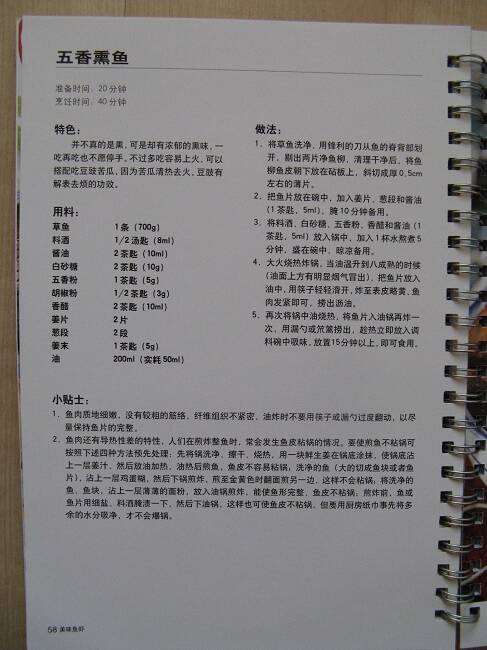 五香熏鱼
准备时间：20分钟
烹饪时间：40分钟
特色：
并不真的是熏，可是却有浓郁的熏味，一
吃再吃也不愿停手，不过多吃容易上火，可以
搭配吃豆豉苦瓜，因为苦瓜清热去火，豆豉有
解表去烦的功效。
用料：
草鱼 1条（700g）
料酒 1/2汤匙（8ml）
酱油 2茶匙（10ml）
白砂糖 2茶匙（10g）
五香粉 1茶匙（5g）
胡椒粉 1/2茶匙（3g）
香醋 2茶匙（10ml）
姜片 2片
葱段 2段
姜末 1茶匙（5g）
油 200ml（实耗50ml）
做法：
1．将草鱼洗净，用锋利的刀从鱼的脊背部划
开，剔出两片净鱼柳，清理干净后，将鱼
柳鱼皮朝下放在砧板上，斜切成厚0.5cm
左右的薄片。
2．把鱼片放在碗中，加入姜片、葱段和酱油
（1茶匙，5ml），腌10分钟备用。
3．将料酒、白砂糖、五香粉、香醋和酱油（1
茶匙，5ml）放入锅中，加入1杯水熬煮5
分钟，盛在碗中，晾凉备用。
4．大火烧热炸锅，当油温升到八成熟的时候
（油面上方有明显烟气冒出），把鱼片放入
油中，用筷子轻轻滑开，炸至表皮略黄，鱼
肉发紧即可，捞出沥油。
5．再次将锅中油烧热，将鱼片入油锅再炸一
次，用漏勺或笊篱捞出，趁热立即放入调
料碗中吸味，放置15分钟以上，即可食用。
小贴士：
1．鱼肉质地细嫩，没有较粗的筋络，纤维组织不紧密，油炸时不要用筷子或漏勺过度翻动，以尽
量保持鱼片的完整。
2．鱼肉还有导热性差的特性，人们在煎炸整鱼时，常会发生鱼皮粘锅的情况，要使煎鱼不粘锅可
按照下述四种方法预先处理：先将锅洗净、擦干、烧热，用一块鲜生姜在锅底涂抹，使锅底沾
上一层姜汁，然后放油加热，油热后煎鱼，鱼皮不容易粘锅；洗净的鱼（大的切成鱼块或者鱼
片），沾上一层鸡蛋糊，然后下锅煎炸，煎至金黄色时翻面煎另一边，这样不会粘锅；将洗净的
鱼、鱼块，沾上一层薄薄的面粉，放入油锅煎炸，能使鱼形完整，鱼皮不粘锅；煎炸前，鱼或
鱼片用细盐、料酒腌渍一下，然后下油锅，这样也可使鱼皮不粘锅，但要用厨房纸巾事先将多
余的水分吸净，才不会爆锅。
58 美味鱼虾